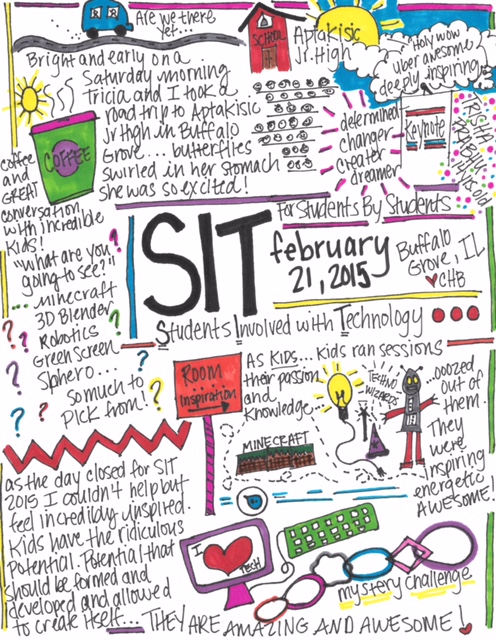 Are we there
yet...
SCHOOL
Aptakisic
Jr. High
Holy wow
uber awesome
deeply inspiring
Bright and early on a
Saturday morning
Tricia and I took a
road trip to Aptakisic
Jr High in Buffalo
Grove.... butterflies
swirled in her stomach
she was so excited!
determined
changer
creater
dreamer
Keynote
COFFEE
coffee
and
GREAT
conversation
with incredible
kids!
"What are you
going to see?"
... Minecraft
3D Blender
Robotics
Green Screen
Sphero...
so much to
pick from!
For Students By Students
SIT
february
21, 2015
Buffalo
Grove, IL
CHB
Students Involved with Technology
ROOM
Inspiration
As KIDS... kids ran sessions
their passion
and
knowledge...
MINECRAFT
TECHNO
WIZARDS
...oozed
out of
them.
They
were
inspiring
energetic
AWESOME!
as the day closed for SIT
2015 I couldn't help but
feel incredibly inspired.
Kids have the ridiculous
Potential. Potential that
should be formed and
developed and allowed
to create itself.... THEY ARE AMAZING AND AWESOME!
I
TECH
mystery challenge